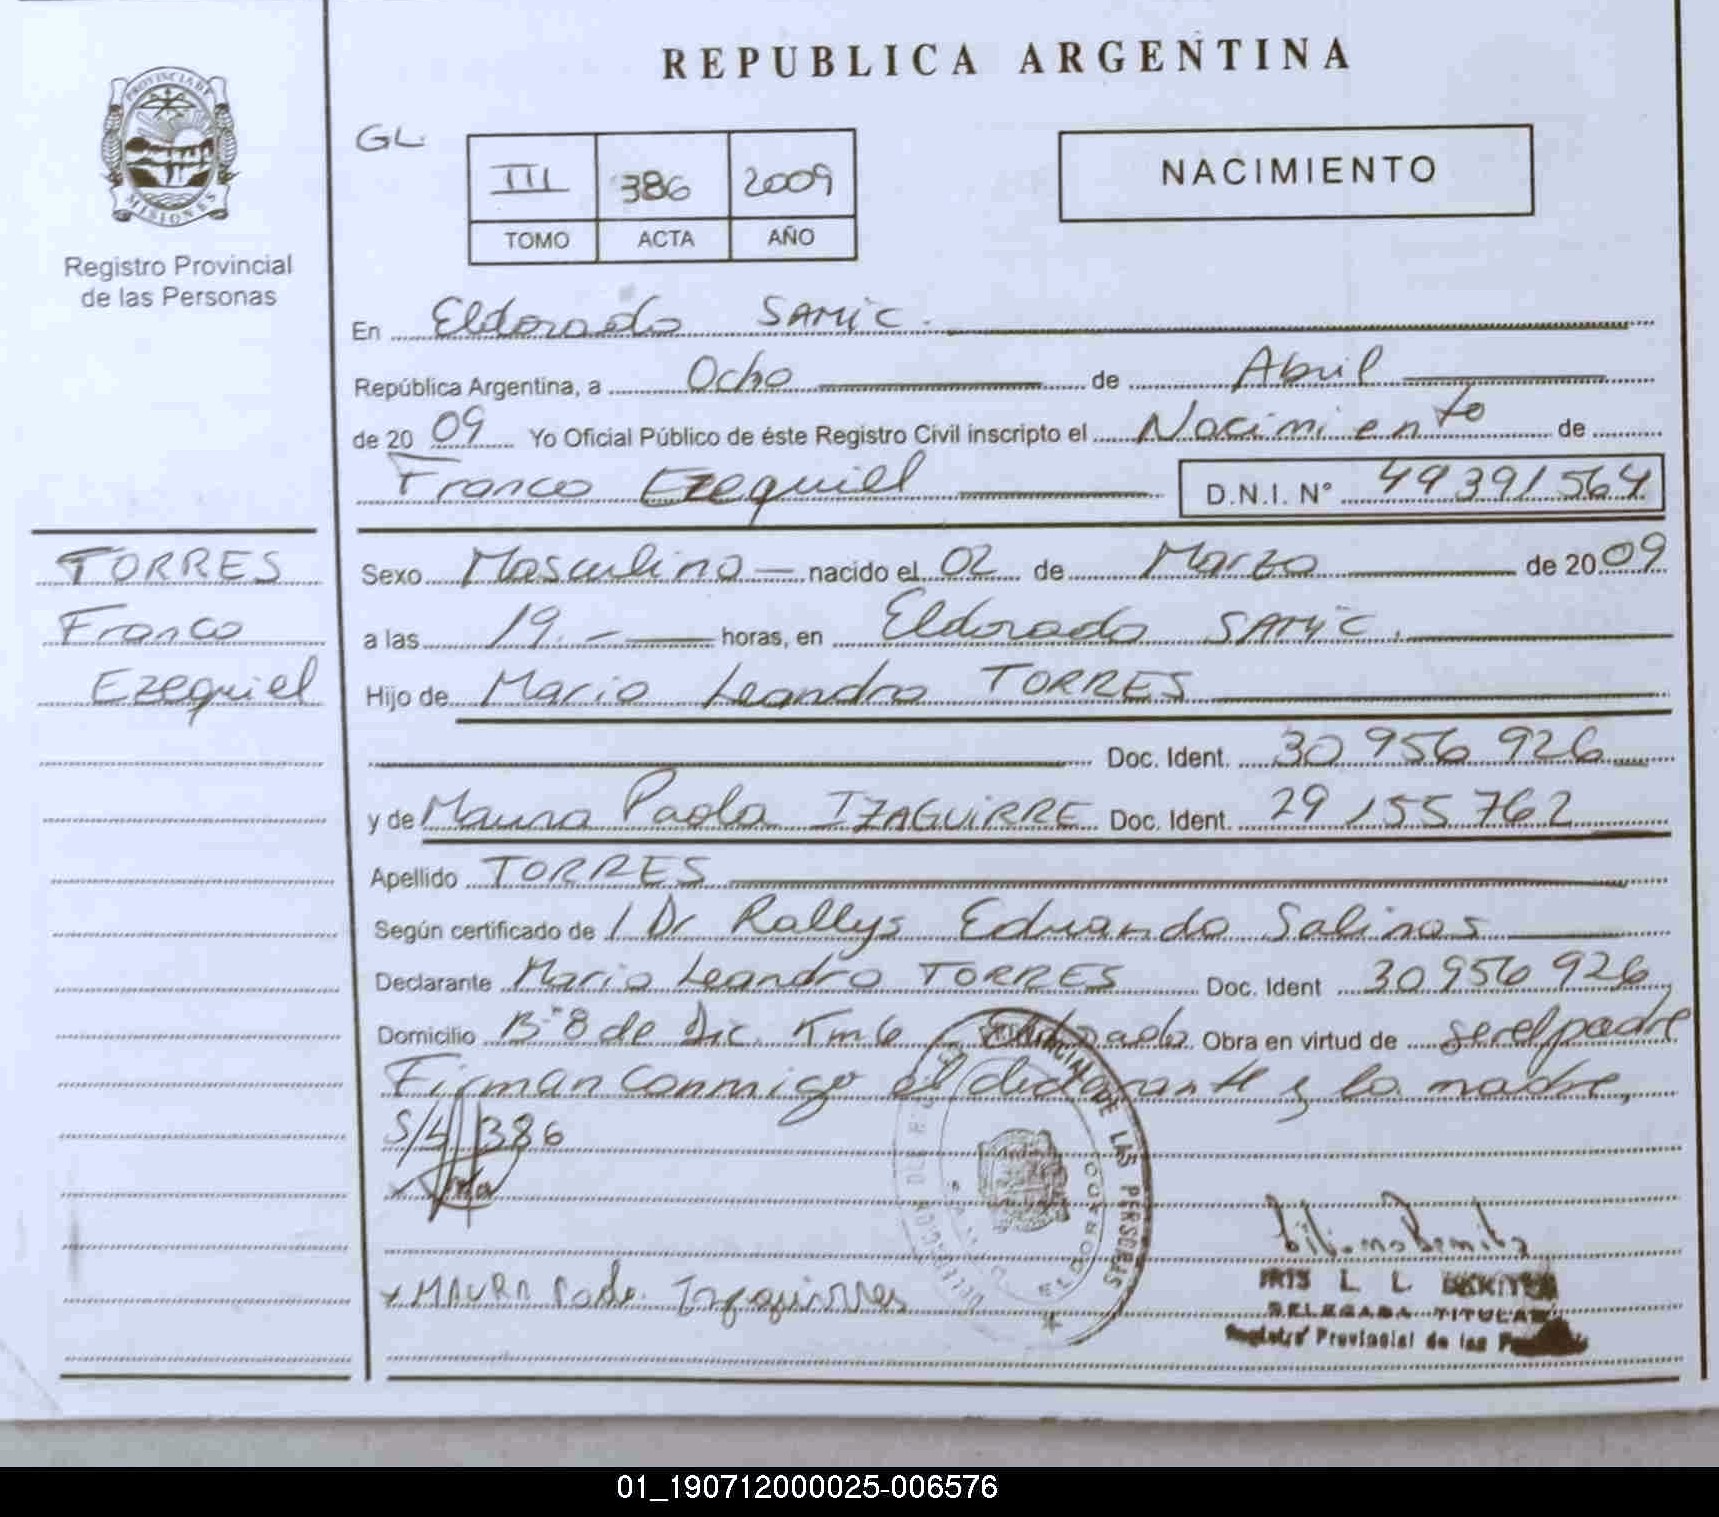 REPUBLICA ARGENTINA
PROVINCIA DE MISIONES
Registro Provincial
de las Personas
GL.
III 386 2009
TOMO ACTA AÑO
NACIMIENTO
En Eldorado SAMIC.
República Argentina, a Ocho de Abril
de 2009 Yo Oficial Público de éste Registro Civil inscripto el Nacimiento de
Franco Ezequiel D.N.I. Nº 49391564
TORRES
Franco
Ezequiel
Sexo Masculino nacido el 02 de Marzo de 2009
a las 19.- horas, en Eldorado SAMIC.
Hijo de Mario Leandro TORRES
Doc. Ident. 30 956 926
y de Maura Paola IZAGUIRRE Doc. Ident. 29 155 762
Apellido TORRES
Según certificado de / Dr Rallys Eduardo Salinas
Declarante Mario Leandro TORRES Doc. Ident 30 956 926
Domicilio Bº 8 de Dic. Km 6 Eldorado Obra en virtud de ser el padre
Firman conmigo el declarante y la madre,
S/L/386
DE LAS PERSONAS
ELDORADO
x MAURA Paola Izaguirre
IRIS L L
DELEGADA TITULAR
Registro Provincial de las
01_190712000025-006576